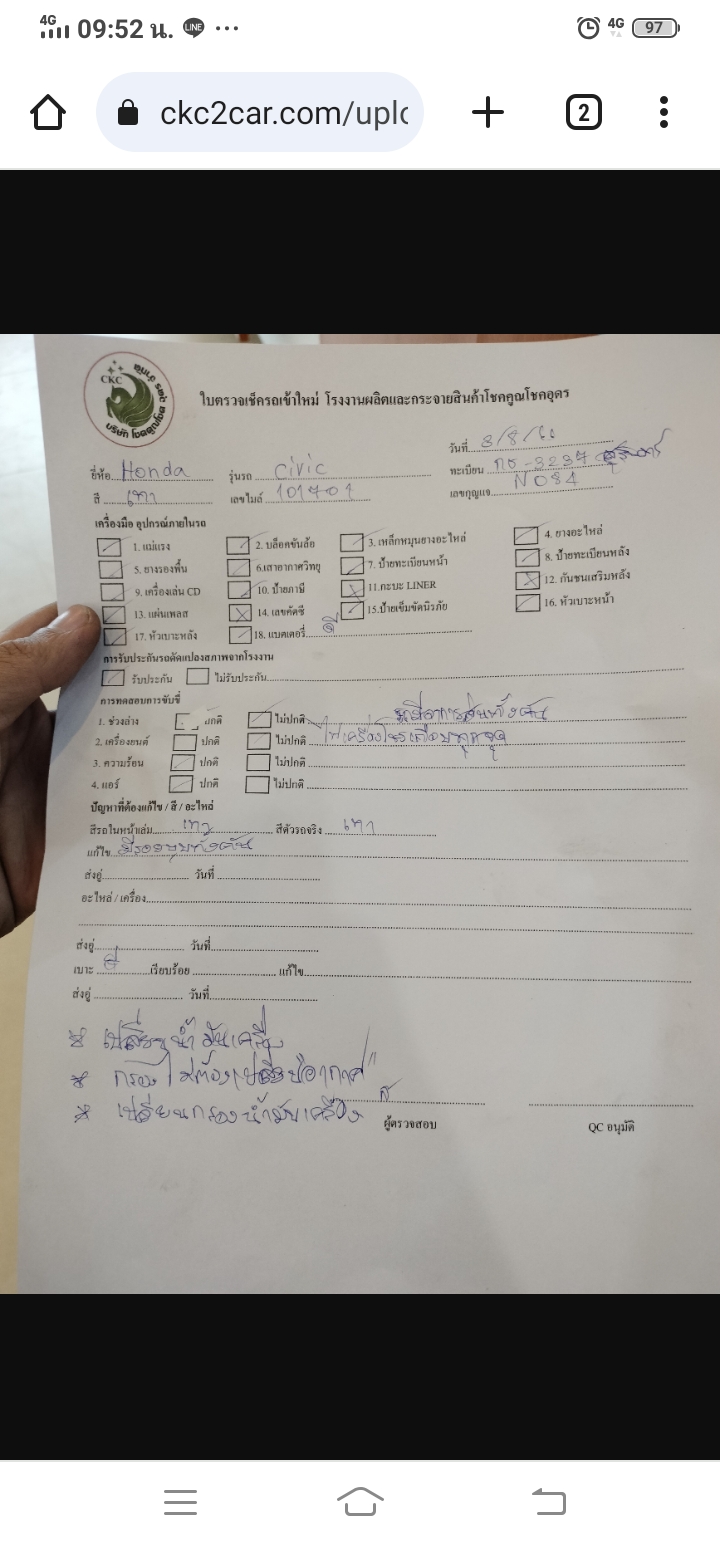 4G 09:52 น. LINE ... 4G 97
ckc2car.com/uplo 2
CKC
บริษัท โชคคูณโชค อุดร จำกัด
ใบตรวจเช็ครถเข้าใหม่ โรงงานผลิตและกระจายสินค้าโชคคูณโชคอุดร
วันที่ 3/8/
ยี่ห้อ Honda รุ่นรถ civic ทะเบียน กธ-3237
สี เทา เลขไมล์ 101701 เลขกุญแจ N084
เครื่องมือ อุปกรณ์ภายในรถ
1. แม่แรง 2. บล็อคขันล้อ 3. เหล็กหมุนยางอะไหล่ 4. ยางอะไหล่
5. ยางรองพื้น 6.เสาอากาศวิทยุ 7. ป้ายทะเบียนหน้า 8. ป้ายทะเบียนหลัง
9. เครื่องเล่น CD 10. ป้ายภาษี 11.กะบะ LINER 12. กันชนเสริมหลัง
13. แผ่นเพลส 14. เลขคัดซี 15.ป้ายเข็มขัดนิรภัย 16. หัวเบาะหน้า
17. หัวเบาะหลัง 18. แบตเตอรี่ ดี
การรับประกันรถดัดแปลงสภาพจากโรงงาน
รับประกัน ไม่รับประกัน
การทดสอบการขับขี่
1. ช่วงล่าง ปกติ ไม่ปกติ มีอาการสั่นทั้งคัน
2. เครื่องยนต์ ปกติ ไม่ปกติ ไฟเครื่องโชว์เตือนทุกจุด
3. ความร้อน ปกติ ไม่ปกติ
4. แอร์ ปกติ ไม่ปกติ
ปัญหาที่ต้องแก้ไข / สี / อะไหล่
สีรถในหน้าเล่ม เทา สีตัวรถจริง เทา
แก้ไข มีรอยบุบทั้งคัน
ส่งอู่ วันที่
อะไหล่ / เครื่อง
ส่งอู่ วันที่
เบาะ ดี เรียบร้อย แก้ไข
ส่งอู่ วันที่
* เปลี่ยนน้ำมันเครื่อง
* กรองไม่ต้องเปลี่ยนอากาศ"
* เปลี่ยนกรองน้ำมันเครื่อง
ผู้ตรวจสอบ QC อนุมัติ